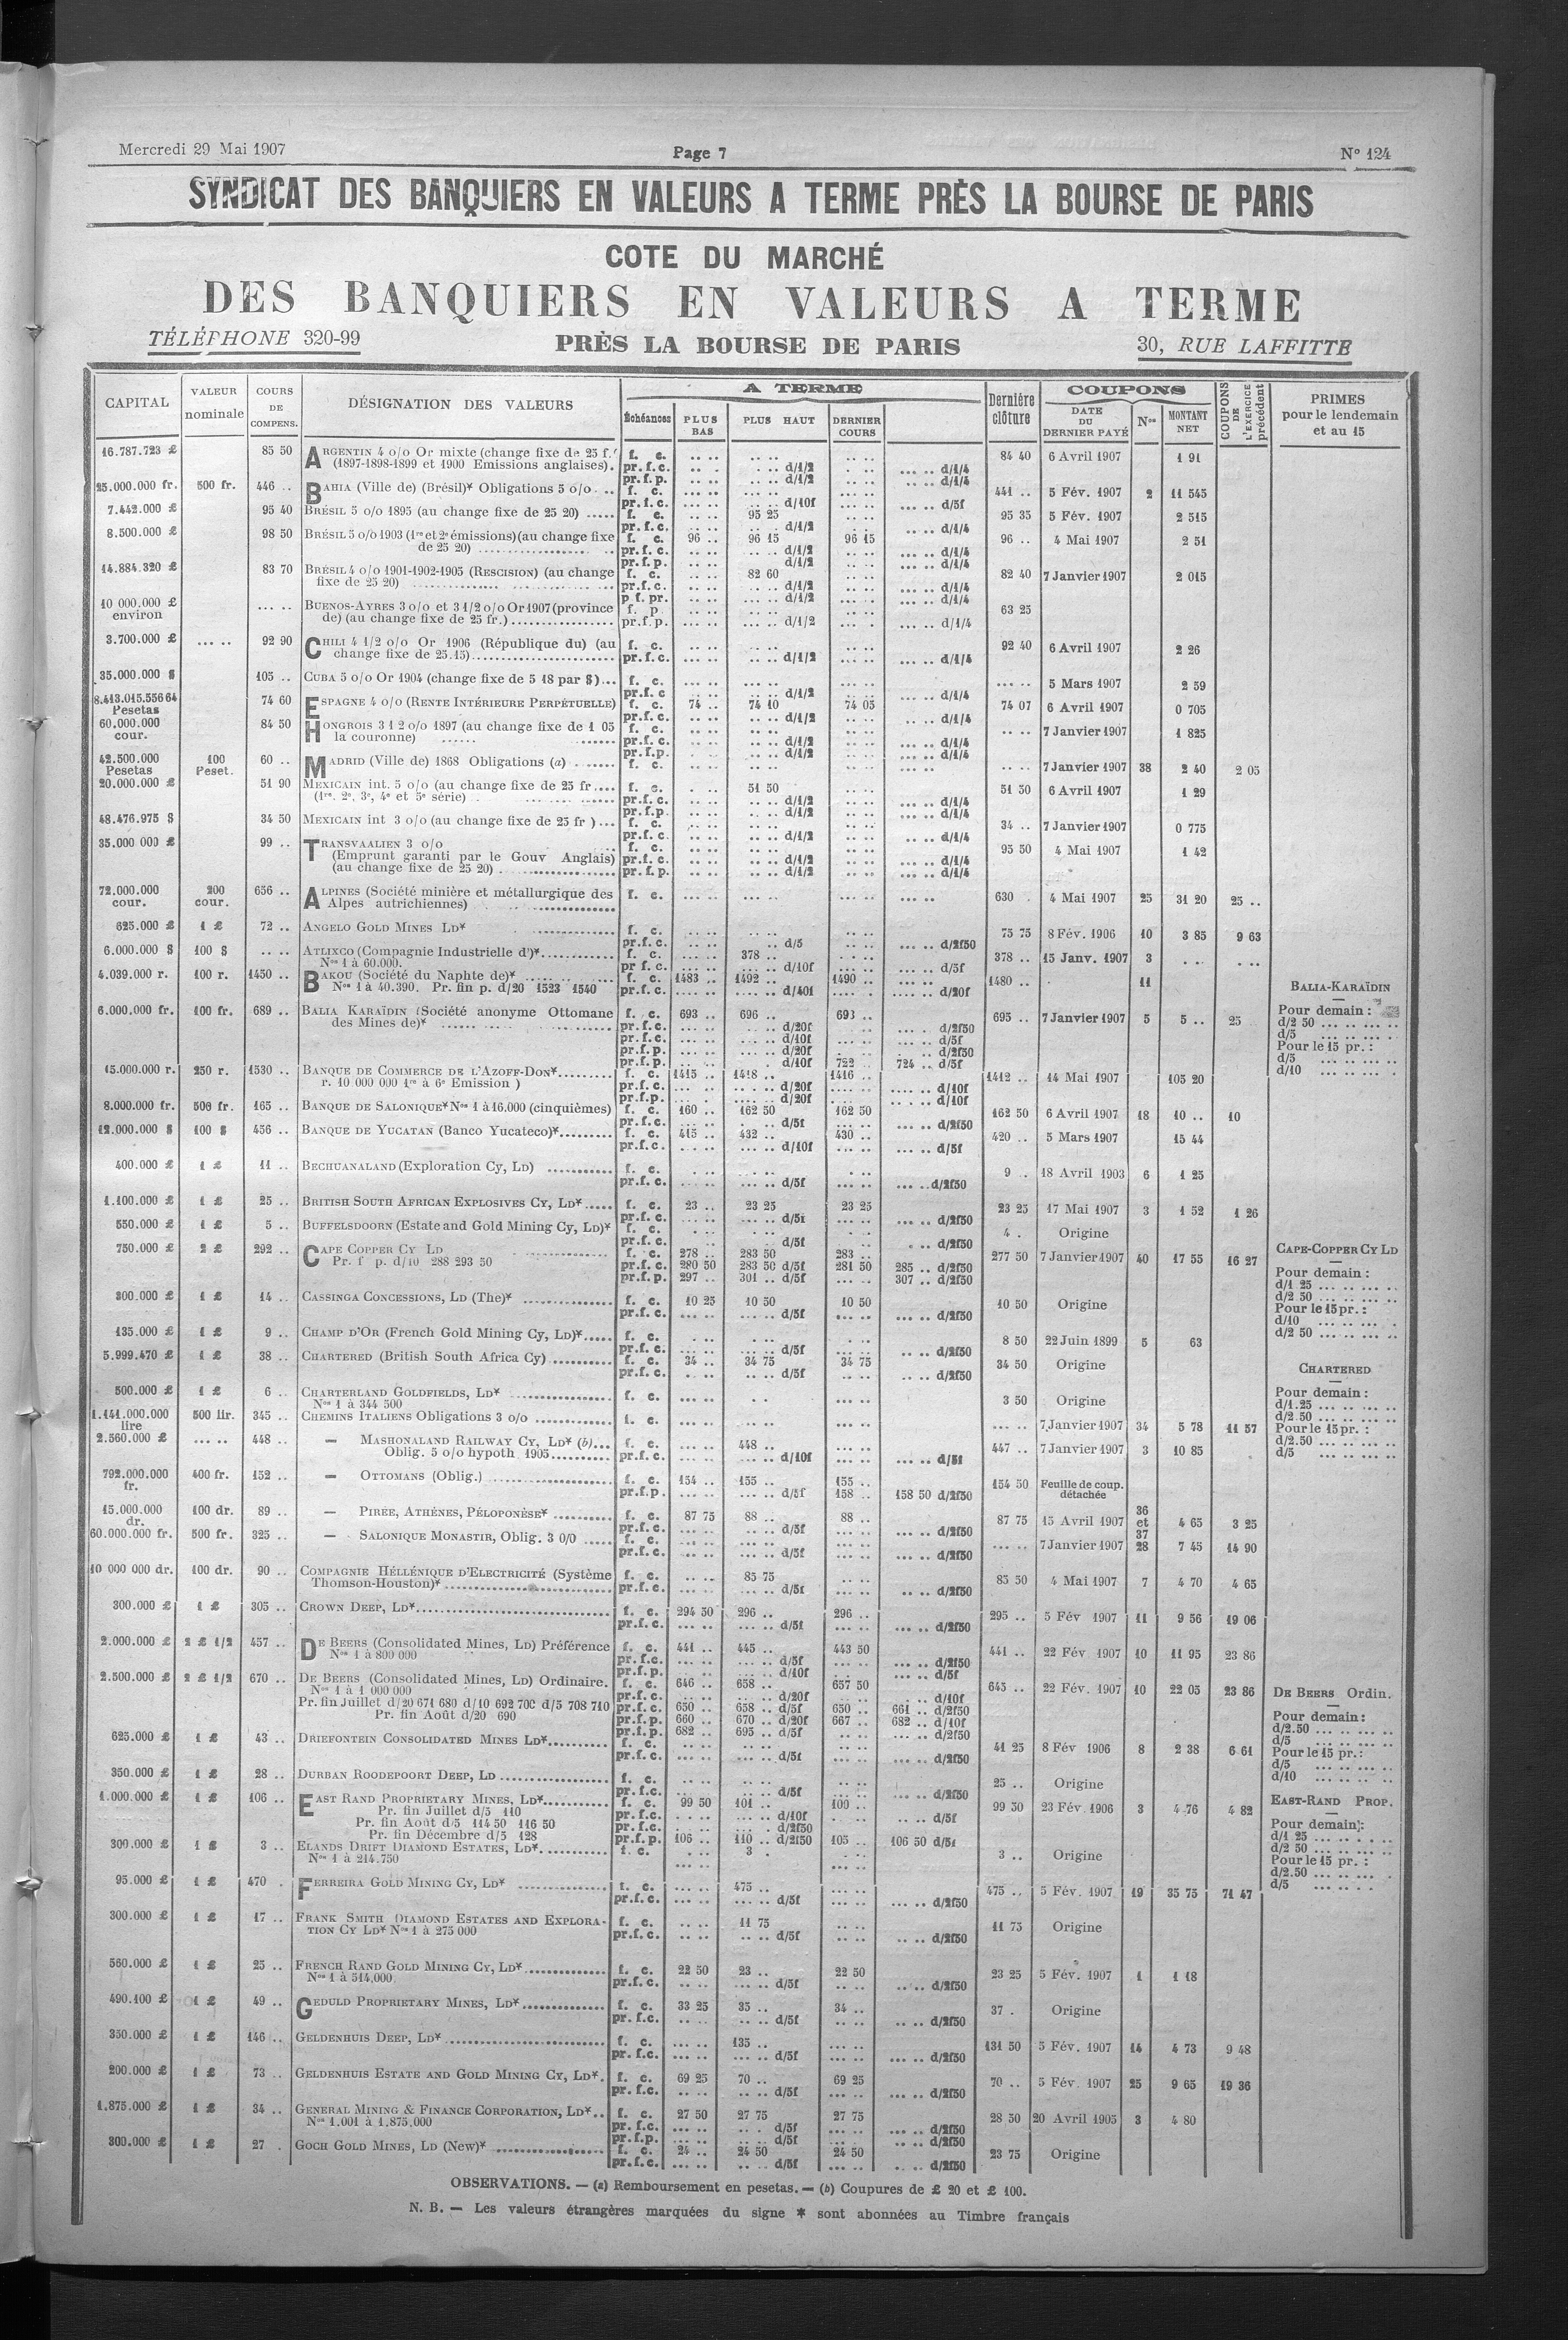 Mercredi 29 Mai 1907
Page 7
N° 124
SYNDICAT DES BANQUIERS EN VALEURS A TERME PRÈS LA BOURSE DE PARIS
COTE DU MARCHÉ
DES BANQUIERS EN VALEURS A TERME
TÉLÉPHONE 320-99
PRÈS LA BOURSE DE PARIS
30, RUE LAFFITTE
CAPITAL
VALEUR nominale
COURS DE COMPENS.
DÉSIGNATION DES VALEURS
A TERME
Échéances
PLUS BAS
PLUS HAUT
DERNIER COURS
Dernière clôture
COUPONS
DATE DU DERNIER PAYÉ
Nos
MONTANT NET
COUPONS DE L'EXERCICE précédent
PRIMES pour le lendemain et au 15
16.787.723 £ 85 50 ARGENTIN 4 o/o Or mixte (change fixe de 25 f. f. c. 84 40 6 Avril 1907 1 91
(1897-1898-1899 et 1900 Emissions anglaises). pr.f.c. d/1/2 d/1/4
pr.f.p. d/1/2 d/1/4
25.000.000 fr. 500 fr. 446 .. BAHIA (Ville de) (Brésil)* Obligations 5 o/o f. c. 441 .. 5 Fév. 1907 2 11 545
pr.f.c. d/10f d/5f
7.442.000 £ 95 40 BRÉSIL 5 o/o 1895 (au change fixe de 25 20) f. c. 95 25 95 35 5 Fév. 1907 2 515
pr.f.c. d/1/2 d/1/4
8.500.000 £ 98 50 BRÉSIL 5 o/o 1903 (1re et 2e émissions) (au change fixe f. c. 96 .. 96 15 96 15 96 .. 4 Mai 1907 2 51
de 25 20) pr.f.c. d/1/2 d/1/4
pr.f.p. d/1/2 d/1/4
14.884.320 £ 83 70 BRÉSIL 4 o/o 1901-1902-1905 (RESCISION) (au change f. c. 82 60 82 40 7 Janvier 1907 2 015
fixe de 25 20) pr.f.c. d/1/2 d/1/4
p f. pr. d/1/2 d/1/4
10 000.000 £ environ BUENOS-AYRES 3 o/o et 3 1/2 o/o Or 1907 (province f. p 63 25
de) (au change fixe de 25 fr.) pr.f.p. d/1/2 d/1/4
3.700.000 £ 92 90 CHILI 4 1/2 o/o Or 1906 (République du) (au f. c. 92 40 6 Avril 1907 2 26
change fixe de 25.15) pr.f.c. d/1/2 d/1/4
35.000.000 $ 105 .. CUBA 5 o/o Or 1904 (change fixe de 5 18 par $) f. c. 5 Mars 1907 2 59
pr.f.c d/1/2 d/1/4
8.413.015.556 64 Pesetas 74 60 ESPAGNE 4 o/o (RENTE INTÉRIEURE PERPÉTUELLE) f. c. 74 .. 74 10 74 05 74 07 6 Avril 1907 0 705
pr.f.c. d/1/2 d/1/4
60.000.000 cour. 84 50 HONGROIS 3 1 2 o/o 1897 (au change fixe de 1 05 f. c. 7 Janvier 1907 1 825
la couronne) pr.f.c. d/1/2 d/1/4
pr.f.p. d/1/2 d/1/4
42.500.000 Pesetas 100 Peset. 60 .. MADRID (Ville de) 1868 Obligations (a) f. c. 7 Janvier 1907 38 2 40 2 05
20.000.000 £ 51 90 MEXICAIN int. 5 o/o (au change fixe de 25 fr f. c. 51 50 51 50 6 Avril 1907 1 29
(1re, 2e, 3e, 4e et 5e série) pr.f.c. d/1/2 d/1/4
pr.f.p. d/1/2 d/1/4
48.476.975 $ 34 50 MEXICAIN int 3 o/o (au change fixe de 25 fr ) f. c. 34 .. 7 Janvier 1907 0 775
pr.f.c. d/1/2 d/1/4
35.000 000 £ 99 .. TRANSVAALIEN 3 o/o f. c. 95 50 4 Mai 1907 1 42
(Emprunt garanti par le Gouv Anglais) pr.f.c. d/1/2 d/1/4
(au change fixe de 25 20) pr.f.p. d/1/2 d/1/4
72.000.000 cour. 200 cour. 656 .. ALPINES (Société minière et métallurgique des f. c. 630 . 4 Mai 1907 25 31 20 25 ..
Alpes autrichiennes)
625.000 £ 1 £ 72 .. ANGELO GOLD MINES LD* f. c. 75 75 8 Fév. 1906 10 3 85 9 63
pr.f.c. d/5 d/2f50
6.000.000 $ 100 $ ATLIXCO (Compagnie Industrielle d')* f. c. 378 .. 378 .. 15 Janv. 1907 3
Nos 1 à 60.000. pr f.c. d/10f d/5f
4.039.000 r. 100 r. 1450 .. BAKOU (Société du Naphte de)* f. c. 1483 .. 1492 .. 1490 .. 1480 .. 11
Nos 1 à 40.390. Pr. fin p. d/20 1523 1540 pr.f.c. d/40f d/20f
6.000.000 fr. 100 fr. 689 .. BALIA KARAÏDIN (Société anonyme Ottomane f. c. 693 .. 696 .. 693 .. 695 .. 7 Janvier 1907 5 5 .. 25
des Mines de)* pr.f.c. d/20f d/2f50
pr.f.c. d/10f d/5f
pr.f.p. d/20f d/2f50
pr.f.p. d/10f 722 724 .. d/5f
BALIA-KARAÏDIN
Pour demain :
d/2 50
d/5
Pour le 15 pr. :
d/5
d/10
15.000.000 r. 250 r. 1530 .. BANQUE DE COMMERCE DE L'AZOFF-DON* f. c. 1415 .. 1418 .. 1416 .. 1412 .. 14 Mai 1907 105 20
r. 10 000 000 1re à 6e Emission ) pr.f.c. d/20f d/10f
pr.f.p. d/20f d/10f
8.000.000 fr. 500 fr. 165 .. BANQUE DE SALONIQUE* Nos 1 à 16.000 (cinquièmes) f. c. 160 .. 162 50 162 50 162 50 6 Avril 1907 18 10 .. 10
pr.f.c. d/5f d/2f50
12.000.000 $ 100 $ 456 .. BANQUE DE YUCATAN (Banco Yucateco)* f. c. 415 .. 432 .. 430 .. 420 .. 5 Mars 1907 15 44
pr.f.c. d/10f d/5f
400.000 £ 1 £ 11 .. BECHUANALAND (Exploration Cy, LD) f. c. 9 .. 18 Avril 1903 6 1 25
pr.f.c. d/5f d/2f50
1.100.000 £ 1 £ 25 .. BRITISH SOUTH AFRICAN EXPLOSIVES CY, LD* f. c. 23 .. 23 25 23 25 23 25 17 Mai 1907 3 1 52 1 26
pr.f.c. d/5f d/2f50
550.000 £ 1 £ 5 .. BUFFELSDOORN (Estate and Gold Mining Cy, LD)* f. c. 4 . Origine
pr.f.c. d/5f d/2f50
750.000 £ 2 £ 292 .. CAPE COPPER CY LD f. c. 278 .. 283 50 283 .. 277 50 7 Janvier 1907 40 17 55 16 27
Pr. f p. d/10 288 293 50 pr.f.c. 280 50 283 50 d/5f 281 50 285 .. d/2f50
pr.f.p. 297 .. 301 .. d/5f 307 .. d/2f50
CAPE-COPPER CY LD
Pour demain :
d/1 25
d/2 50
Pour le 15 pr. :
d/10
d/2 50
300.000 £ 1 £ 14 .. CASSINGA CONCESSIONS, LD (The)* f. c. 10 25 10 50 10 50 10 50 Origine
pr.f.c. d/5f d/2f50
135.000 £ 1 £ 9 .. CHAMP D'OR (French Gold Mining Cy, LD)* f. c. 8 50 22 Juin 1899 5 63
pr.f.c. d/5f d/2f50
5.999.470 £ 1 £ 38 .. CHARTERED (British South Africa Cy) f. c. 34 .. 34 75 34 75 34 50 Origine
pr.f.c. d/5f d/2f50
CHARTERED
Pour demain :
d/1.25
d/2.50
Pour le 15 pr. :
d/2.50
d/5
500.000 £ 1 £ 6 .. CHARTERLAND GOLDFIELDS, LD* f. c. 3 50 Origine
Nos 1 à 344 500
1.141.000.000 lire 500 lir. 345 .. CHEMINS ITALIENS Obligations 3 o/o f. c. 7 Janvier 1907 34 5 78 11 57
2.560.000 £ 448 .. — MASHONALAND RAILWAY CY, LD* (b) f. c. 448 .. 447 .. 7 Janvier 1907 3 10 85
Oblig. 5 o/o hypoth 1905 pr.f.c. d/10f d/5f
792.000.000 fr. 400 fr. 152 .. — OTTOMANS (Oblig.) f. c. 154 .. 155 .. 155 .. 154 50 Feuille de coup. détachée
pr.f.p. d/5f 158 .. 158 50 d/2f50
15.000.000 dr. 100 dr. 89 .. — PIRÉE, ATHÈNES, PÉLOPONÈSE* f. c. 87 75 88 .. 88 .. 87 75 15 Avril 1907 36 et 37 4 65 3 25
pr.f.c. d/5f d/2f50
60.000.000 fr. 500 fr. 325 .. — SALONIQUE MONASTIR, Oblig. 3 0/0 f. c. 7 Janvier 1907 28 7 45 14 90
pr.f.c. d/5f d/2f50
10 000 000 dr. 100 dr. 90 .. COMPAGNIE HÉLLÉNIQUE D'ELECTRICITÉ (Système f. c. 85 75 85 50 4 Mai 1907 7 4 70 4 65
Thomson-Houston)* pr.f.c. d/5f d/2f50
300.000 £ 1 £ 305 .. CROWN DEEP, LD* f. c. 294 50 296 .. 296 .. 295 .. 5 Fév 1907 11 9 56 19 06
pr.f.c. d/5f d/2f50
2.000.000 £ 2 £ 1/2 457 .. DE BEERS (Consolidated Mines, LD) Préférence f. c. 441 .. 445 .. 443 50 441 .. 22 Fév 1907 10 11 95 23 86
Nos 1 à 800 000 pr.f.c. d/5f d/2f50
pr.f.p. d/10f d/5f
2.500.000 £ 2 £ 1/2 670 .. DE BEERS (Consolidated Mines, LD) Ordinaire. f. c. 646 .. 658 .. 657 50 645 .. 22 Fév. 1907 10 22 05 23 86
Nos 1 à 1 000 000 pr.f.c. d/20f d/10f
Pr. fin Juillet d/20 671 680 d/10 692 700 d/5 708 710 pr.f.c. 650 .. 658 .. d/5f 650 .. 661 .. d/2f50
Pr. fin Août d/20 690 pr.f.p. 660 .. 670 .. d/20f 667 .. 682 .. d/10f
pr.f.p. 682 .. 695 .. d/5f d/2f50
DE BEERS Ordin.
Pour demain :
d/2.50
d/5
Pour le 15 pr. :
d/5
d/10
625.000 £ 1 £ 43 .. DRIEFONTEIN CONSOLIDATED MINES LD* f. c. 41 25 8 Fév 1906 8 2 38 6 61
pr.f.c. d/5f d/2f50
350.000 £ 1 £ 28 .. DURBAN ROODEPOORT DEEP, LD f. c. 25 .. Origine
pr.f.c. d/5f d/2f50
1.000.000 £ 1 £ 106 .. EAST RAND PROPRIETARY MINES, LD* f. c. 99 50 101 .. 100 .. 99 50 23 Fév. 1906 3 4 76 4 82
Pr. fin Juillet d/5 110 pr.f.c. d/10f d/5f
Pr. fin Août d/5 114 50 116 50 pr.f.c. d/2f50
Pr. fin Décembre d/5 128 pr.f.p. 106 .. 110 .. d/2f50 105 .. 106 50 d/5f
EAST-RAND PROP.
Pour demain :
d/1 25
d/2 50
Pour le 15 pr. :
d/2.50
d/5
300.000 £ 1 £ 3 .. ELANDS DRIFT DIAMOND ESTATES, LD* f. c. 3 . 3 .. Origine
Nos 1 à 214.750
95.000 £ 1 £ 470 . FERREIRA GOLD MINING CY, LD* f. c. 475 .. 475 .. 5 Fév. 1907 19 35 75 71 47
pr.f.c. d/5f d/2f50
300.000 £ 1 £ 17 .. FRANK SMITH DIAMOND ESTATES AND EXPLORA- f. c. 11 75 11 75 Origine
TION CY LD* Nos 1 à 275 000 pr.f.c. d/5f d/2f50
560.000 £ 1 £ 25 .. FRENCH RAND GOLD MINING CY, LD* f. c. 22 50 23 .. 22 50 23 25 5 Fév. 1907 1 1 18
Nos 1 à 514,000 pr.f.c. d/5f d/2f50
490.100 £ 1 £ 49 .. GEDULD PROPRIETARY MINES, LD* f. c. 33 25 35 .. 34 .. 37 . Origine
pr. f.c. d/5f d/2f50
350.000 £ 1 £ 146 .. GELDENHUIS DEEP, LD* f. c. 135 .. 131 50 5 Fév. 1907 14 4 73 9 48
pr. f.c. d/5f d/2f50
200.000 £ 1 £ 73 .. GELDENHUIS ESTATE AND GOLD MINING CY, LD*. f. c. 69 25 70 .. 69 25 70 .. 5 Fév. 1907 25 9 65 19 36
pr. f.c. d/5f d/2f50
1.875.000 £ 1 £ 34 .. GENERAL MINING & FINANCE CORPORATION, LD* f. c. 27 50 27 75 27 75 28 50 20 Avril 1905 3 4 80
Nos 1.001 à 1.875.000 pr. f.c. d/5f d/2f50
pr.f.p. d/5f d/2f50
300.000 £ 1 £ 27 . GOCH GOLD MINES, LD (New)* f. c. 24 .. 24 50 24 50 23 75 Origine
pr.f.c. d/5f d/2f50
OBSERVATIONS. — (a) Remboursement en pesetas. — (b) Coupures de £ 20 et £ 100.
N. B. — Les valeurs étrangères marquées du signe * sont abonnées au Timbre français